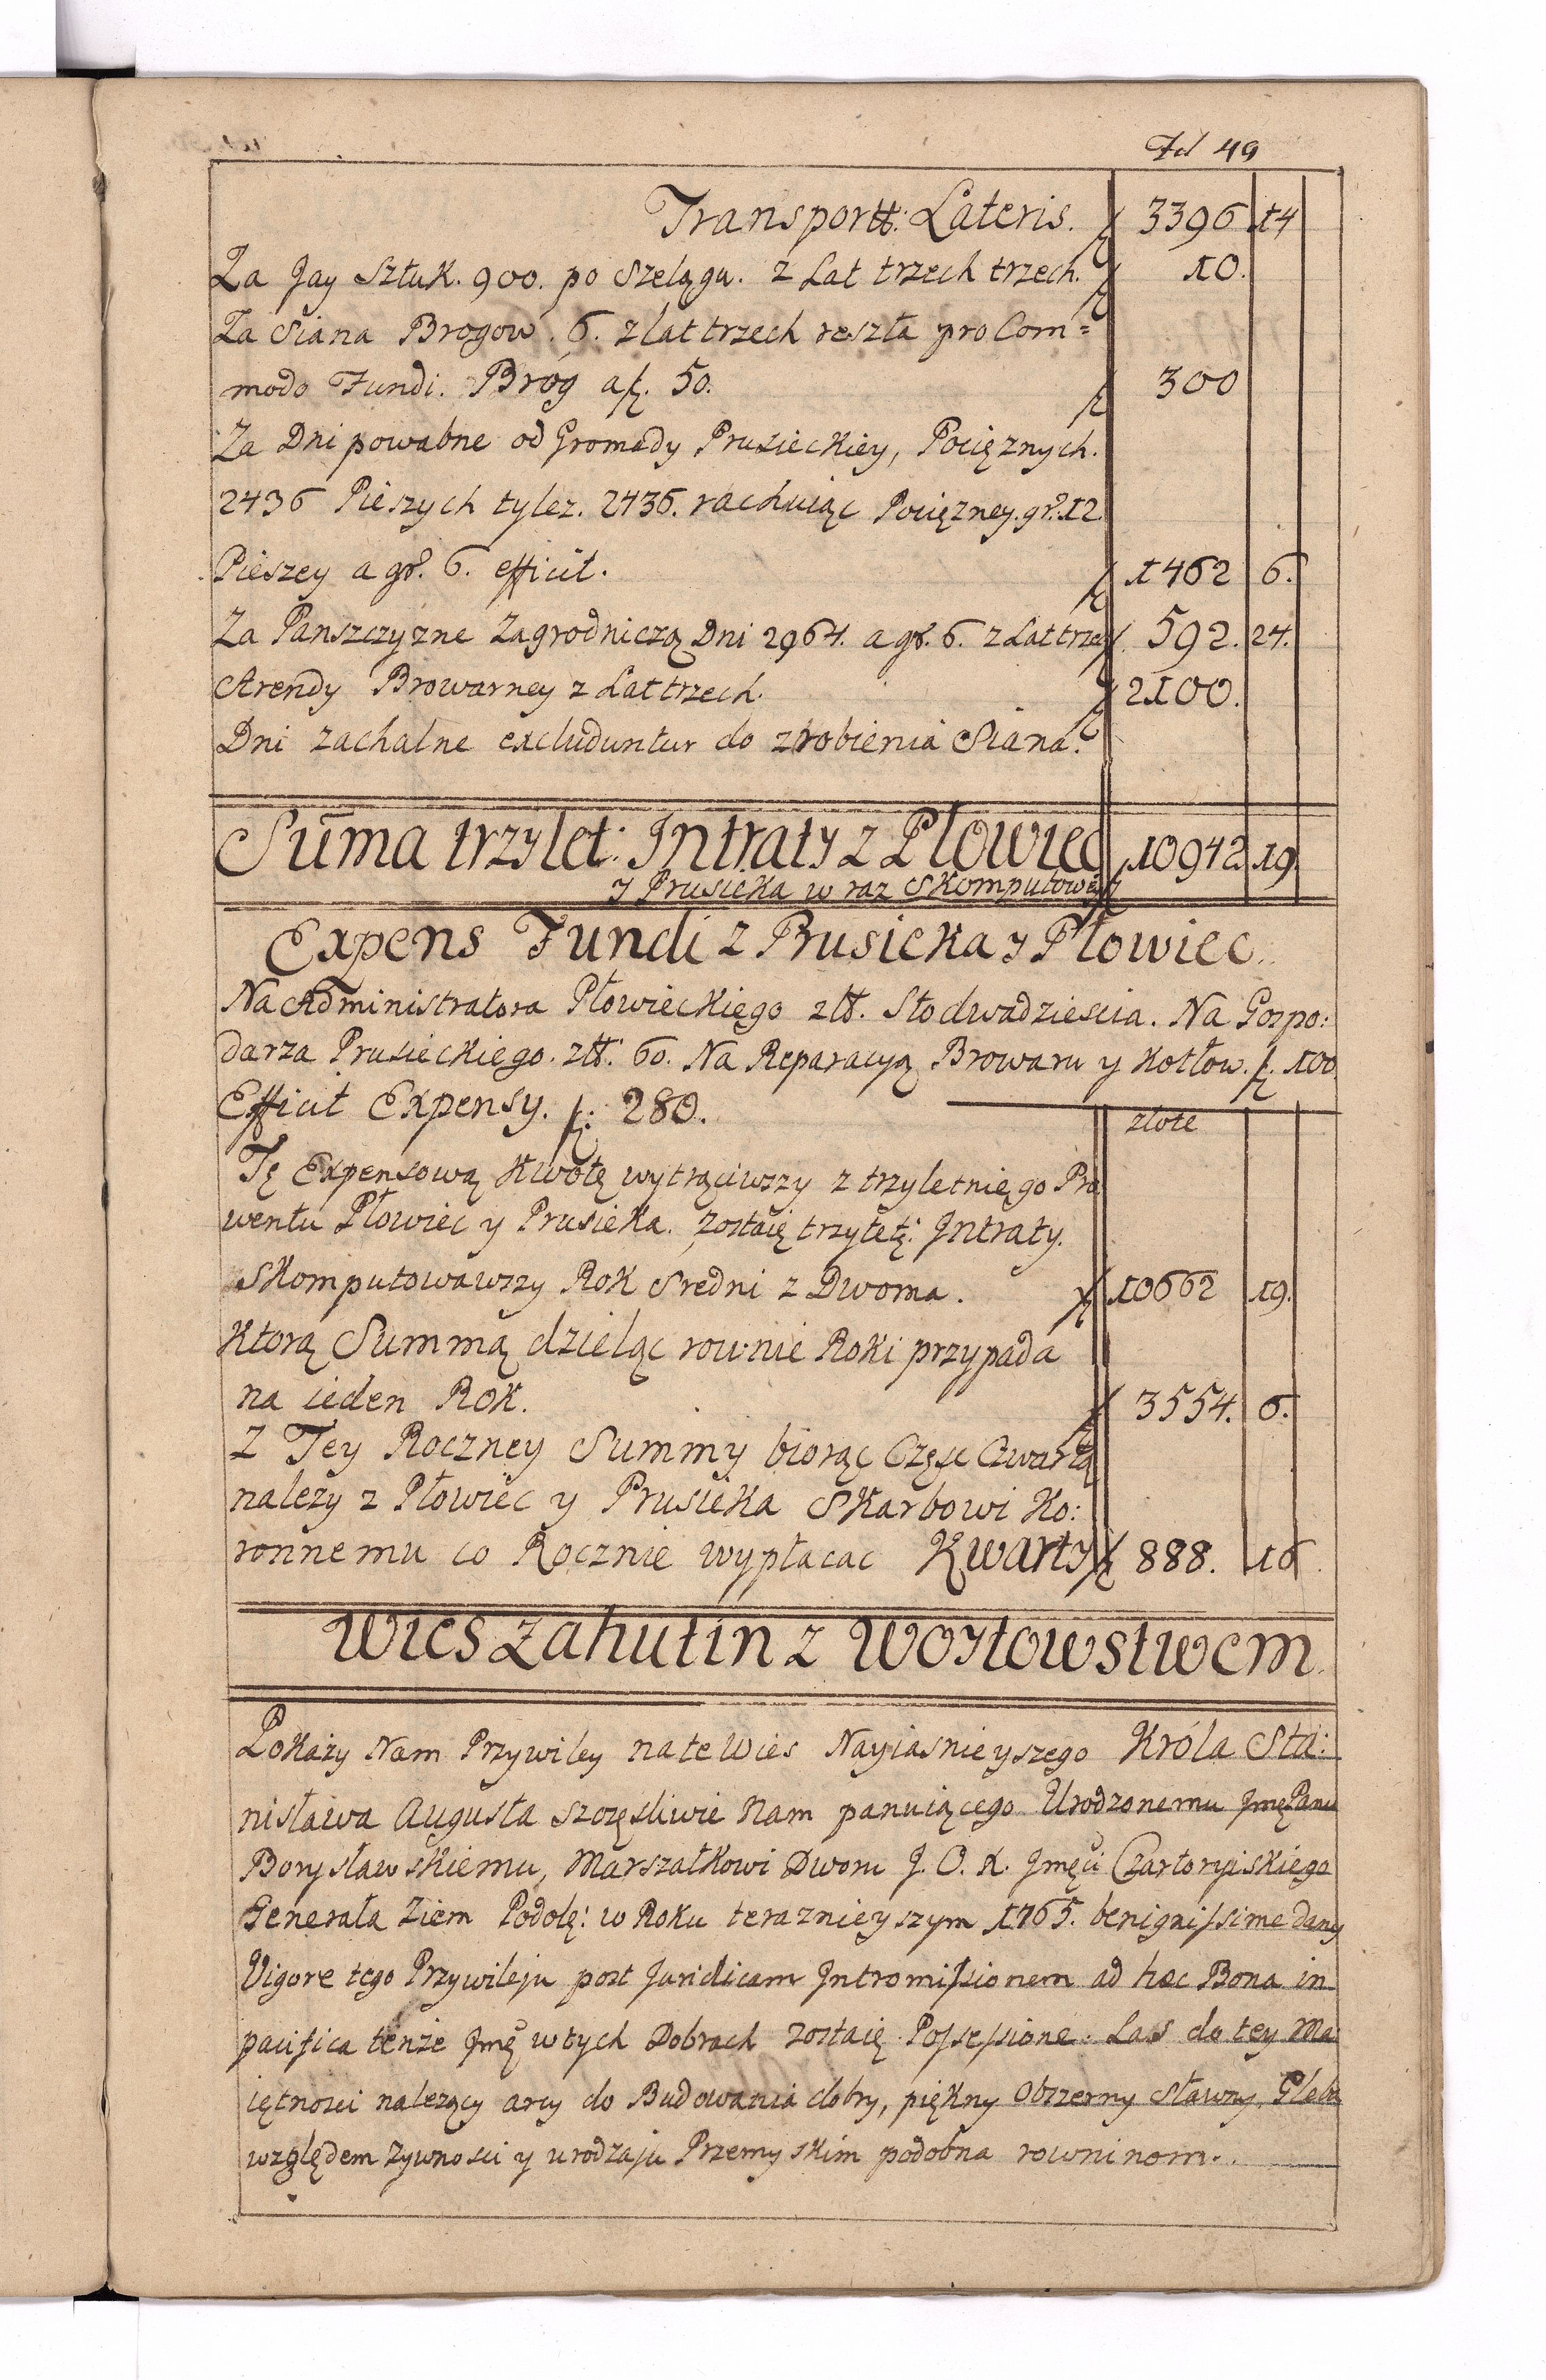 Fol 49
Transportt: Lateris. f 3396 14
Za Jay Sztuk. 900. po Szelągu. z Lat trzech trzech. f 10.
Za Siana Brogow. 6. z lat trzech reszta pro Com=
modo Fundi. Brog a f. 50. f 300
Za Dni powabne od Gromady Prusieckiey, Pociężnych.
2436 Pieszych tylez. 2436. rachuiąc Pociężney. gr. 12
Pieszey a gr. 6. efficit. f 1462 6.
Za Panszczyzne Zagrodniczą Dni 2964. a gr. 6. z Lat trzech f. 592. 24.
Arendy Browarney z Lat trzech. f 2100.
Dni zachalne excluduntur do zrobienia Siana.
Suma trzylet: Intraty z Płowiec f 10942 19.
y Prusieka w raz skomputowaney
Expens Fundi z Prusieka y Płowiec.
Na Administratora Płowieckiego złt. Sto dwadziescia. Na Gospo:
darza Prusieckiego. złt. 60. Na Reparacyą Browaru y kotłow. f. 100.
Efficit Expensy. f: 280.
złote
Tę Expensową Kwotę wytrąciwszy z trzyletniego Pro
wentu Płowiec y Prusieka. zostaię trzyletę: Intraty.
skomputowawszy Rok Sredni z Dwoma. f 10662 19.
Ktorą Summą dzieląc rownie Roki przypada
na ieden Rok. f 3554. 6.
Z Tey Roczney Summy biorąc Częsc Czwartą
należy z Płowiec y Prusieka Skarbowi Ko:
ronnemu co Rocznie wypłacac Kwarty f 888. 16
Wies Zahutin z Woytowstwem.
Pokaży Nam Przywiley na te Wies Nayiasnieyszego Króla Sta:
nisława Augusta szczęsliwie Nam panuiącego Urodzonemu Jmę Panu
Borysławskiemu, Marszałkowi Dworu J. O. X. Jmęci Czartoryiskiego
Generała Ziem Podolę: w Roku teraznieyszym 1765. benignissime dany
Vigore tego Przywileju post Juridicam Intromissionem ad hæc Bona in
pacifica tenże Jmę w tych Dobrach zostaię Possessione. Las do tey Ma
iętnosci nalezący arcy do Budowania dobry, piękny Obszerny Sławny. Gleba
względem żywnosci y urodzaju Przemyskim podobna rowninom.